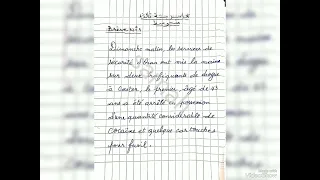 Brève N°1
Dimanche matin, les services de
sécurité d'Oran ont mis la main
sur deux trafiquants de drogue
à Caster, le premier, âgé de 43
ans a été arrêté en possession
d'une quantité considérable de
cocaïne et quelque cartouches
pour fusil.